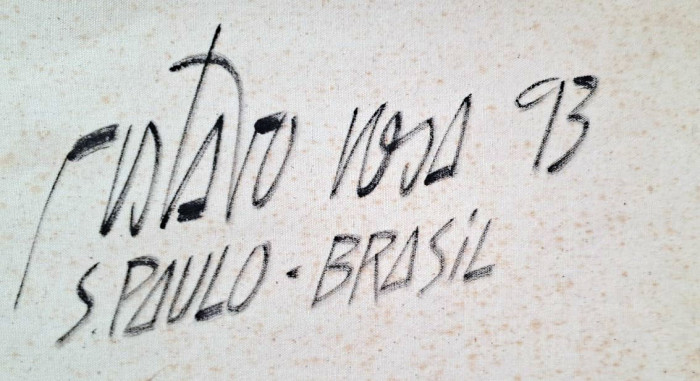 Gustavo Rosa 93
S. PAULO - BRASIL